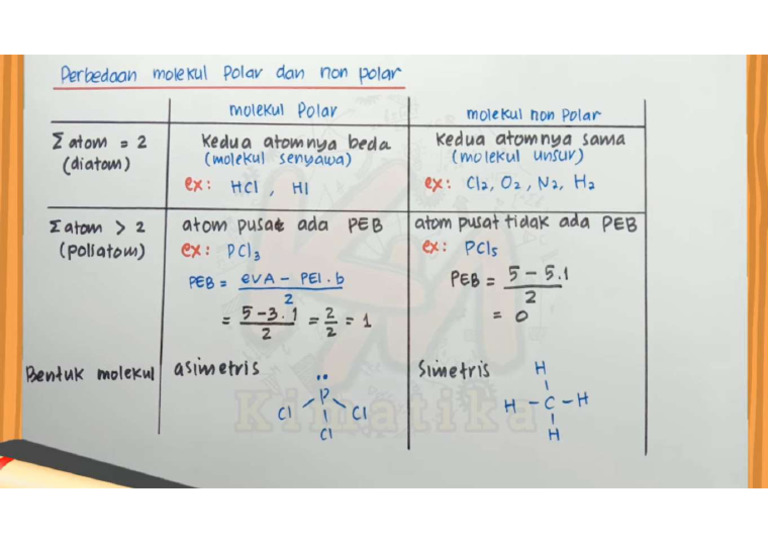 Perbedaan molekul Polar dan non polar
molekul Polar
molekul non Polar
Σ atom = 2
(diatom)
Kedua atomnya beda
(molekul senyawa)
ex: HCl, HI
Kedua atomnya sama
(molekul unsur)
ex: Cl2, O2, N2, H2
Σ atom > 2
(poliatom)
atom pusat ada PEB
ex: PCl3
PEB = eVA - PEI.b
2
= 5-3.1 = 2 = 1
2 2
atom pusat tidak ada PEB
ex: PCl5
PEB = 5 - 5.1
2
= 0
Bentuk molekul
asimetris
P
Cl Cl
Cl
Simetris
H
H - C - H
H
Kimatika